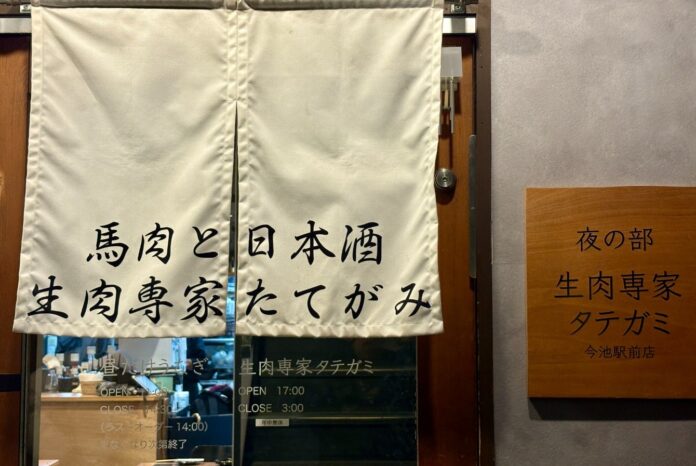 馬肉と日本酒
生肉専家 たてがみ
夜の部
生肉専家
タテガミ
今池駅前店
生肉専家タテガミ
OPEN 17:00
CLOSE 3:00
OPEN
CLOSE
(ラストオーダー 14:00)
次第終了